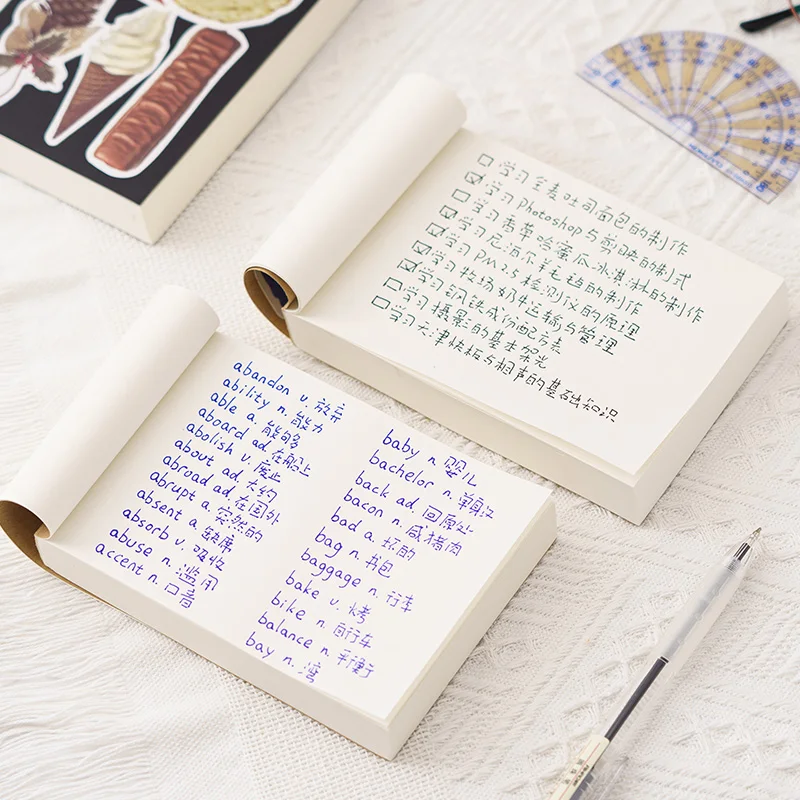 ☐ 学习全麦吐司面包的制作
☑ 学习Photoshop与剪映的制式
☐ 学习香草哈蜜瓜冰淇淋的制作
☑ 学习尼泊尔羊毛毡的制作
☑ 学习PM2.5检测仪的原理
☑ 学习牧场奶牛运输与管理
☑ 学习钢铁成份配方表
☐ 学习摄影的基本架光
☐ 学习天津快板与相声的基础知识
abandon v. 放弃
ability n. 能力
able a. 能够
aboard ad. 在船上
abolish v. 废止
about ad. 大约
abroad ad. 在国外
abrupt a. 突然的
absent a. 缺席
absorb v. 吸收
abuse n. 滥用
accent n. 口音
baby n. 婴儿
bachelor n. 单身汉
back ad. 回原处
bacon n. 咸猪肉
bad a. 坏的
bag n. 书包
baggage n. 行车
bake v. 烤
bike n. 自行车
balance n. 平衡
bay n. 湾